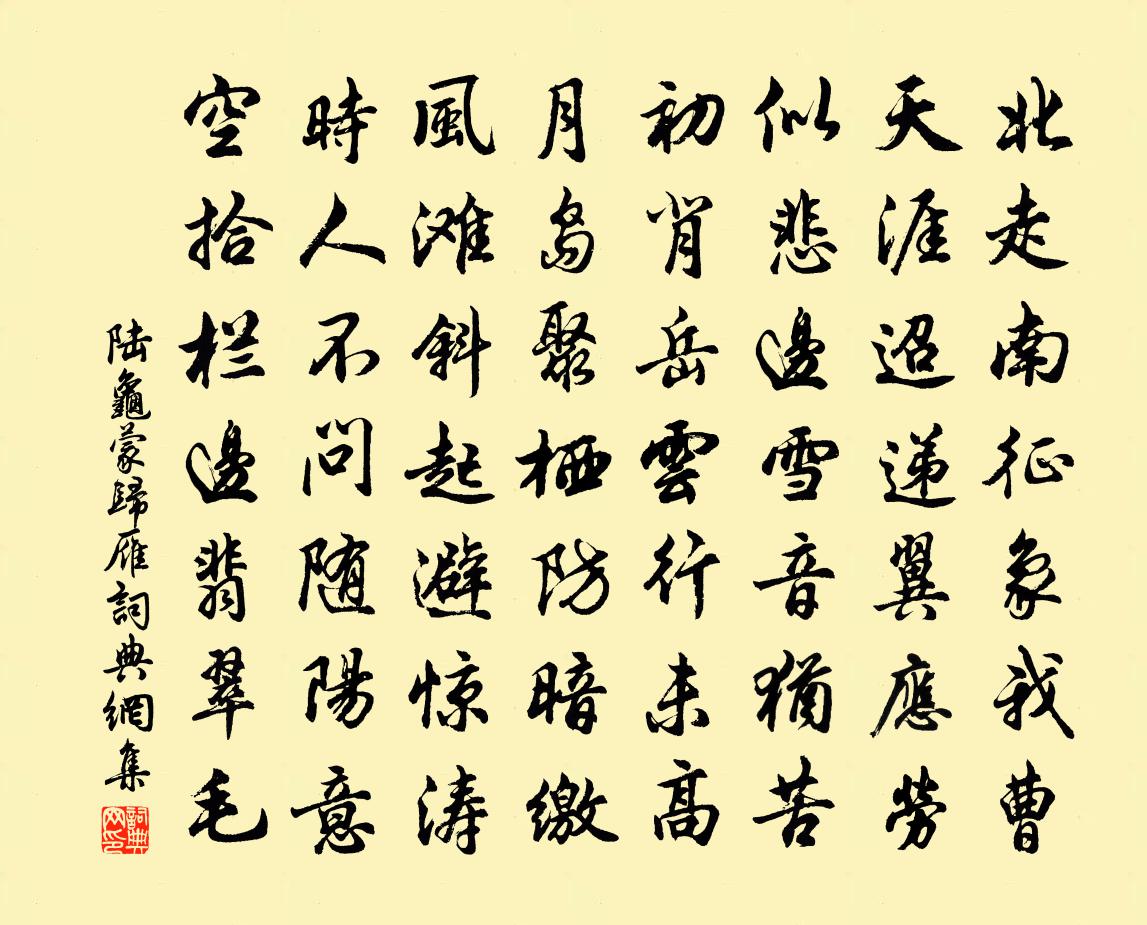 北走南征象我曹
天涯迢递翼應勞
似悲邊雪音猶苦
初背岳雲行未高
月島聚栖防暗繳
風滩斜起避惊涛
時人不問随陽意
空拾栏邊翡翠毛
陆龜蒙歸雁詞典網集
詞典网印